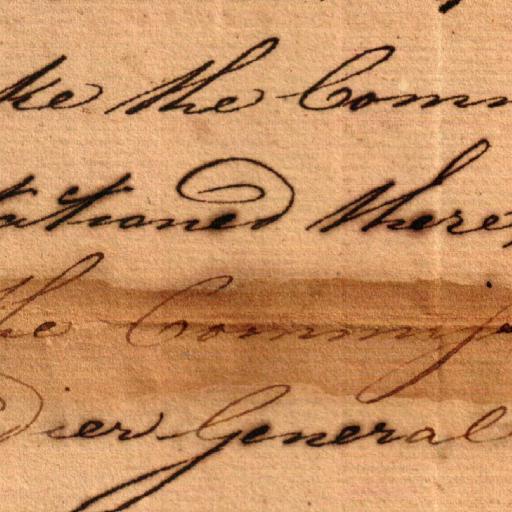 ke the Comm
tationed there,
the Commiss
dier General